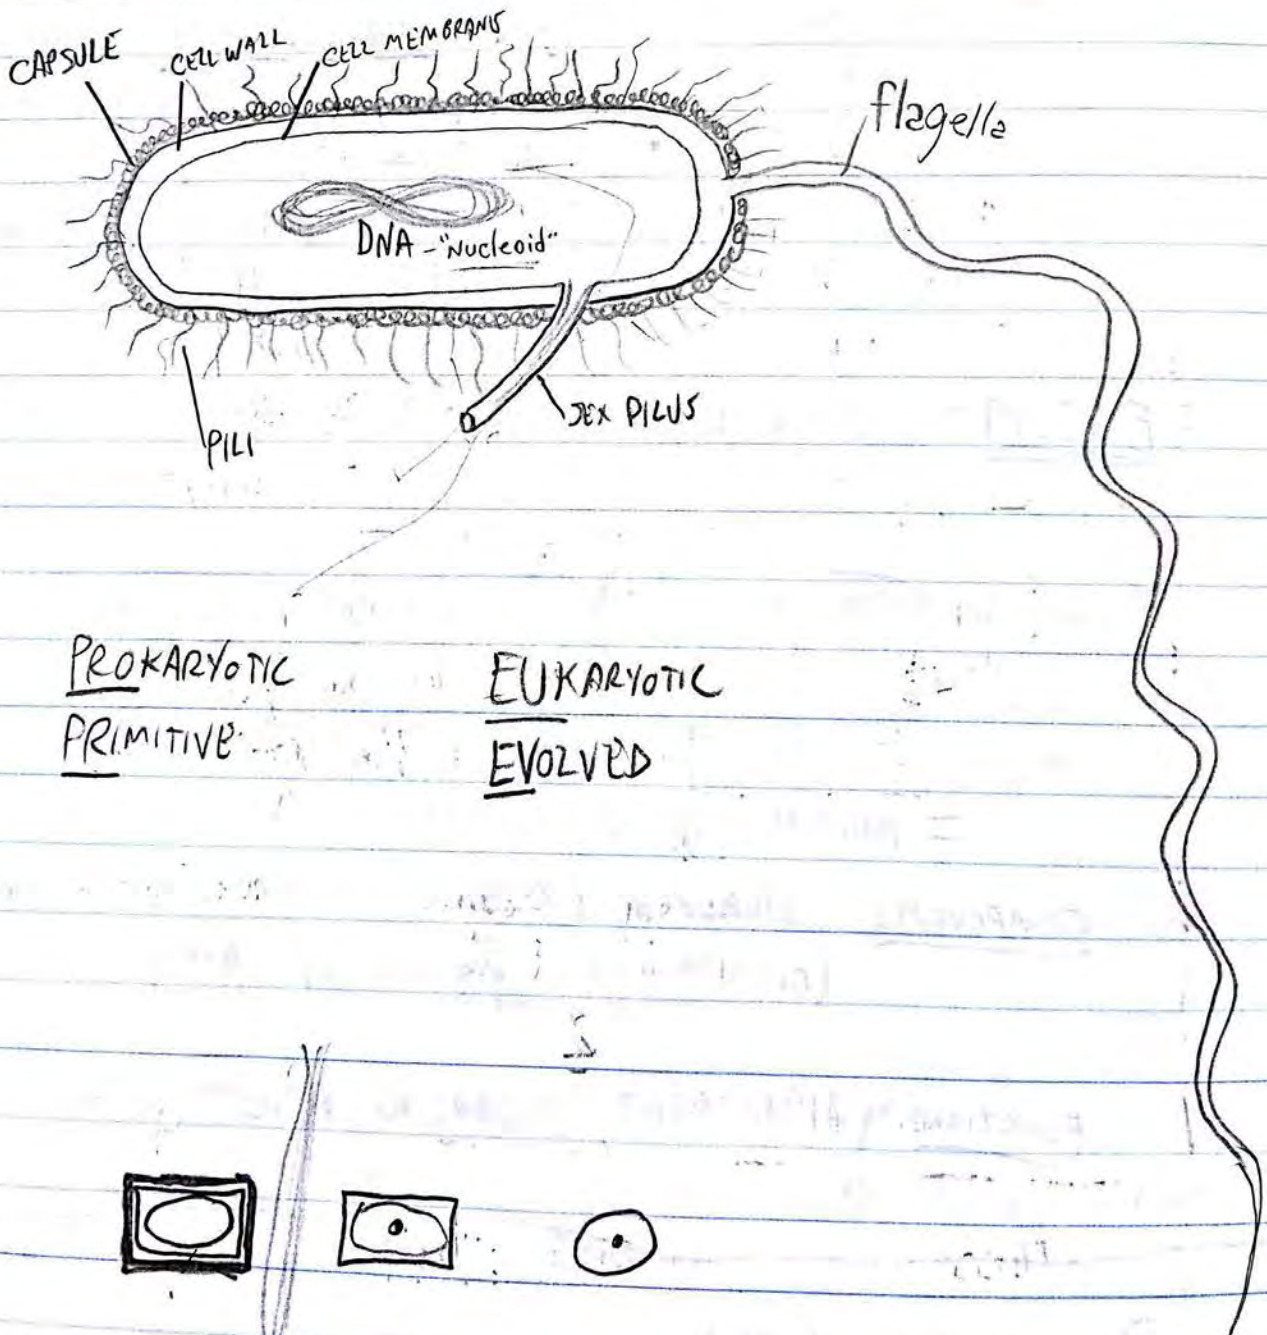 CAPSULE
CELL WALL
CELL MEMBRANE
flagella
DNA - "Nucleoid"
SEX PILUS
PILI
PROKARYOTIC EUKARYOTIC
PRIMITIVE EVOLVED